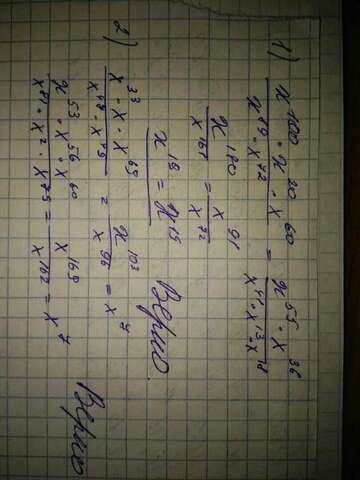 1) x^100 · x^20 · x^60 / x^89 · x^72 = x^55 · x^36 / x^41 · x^13 · x^18
x^180 / x^161 = x^91 / x^72
x^19 = x^19 Верно
2) x^33 · x · x^69 / x^47 · x^49 = x^103 / x^96 = x^7
x^53 · x^56 · x^60 / x^81 · x^2 · x^79 = x^169 / x^162 = x^7
Верно